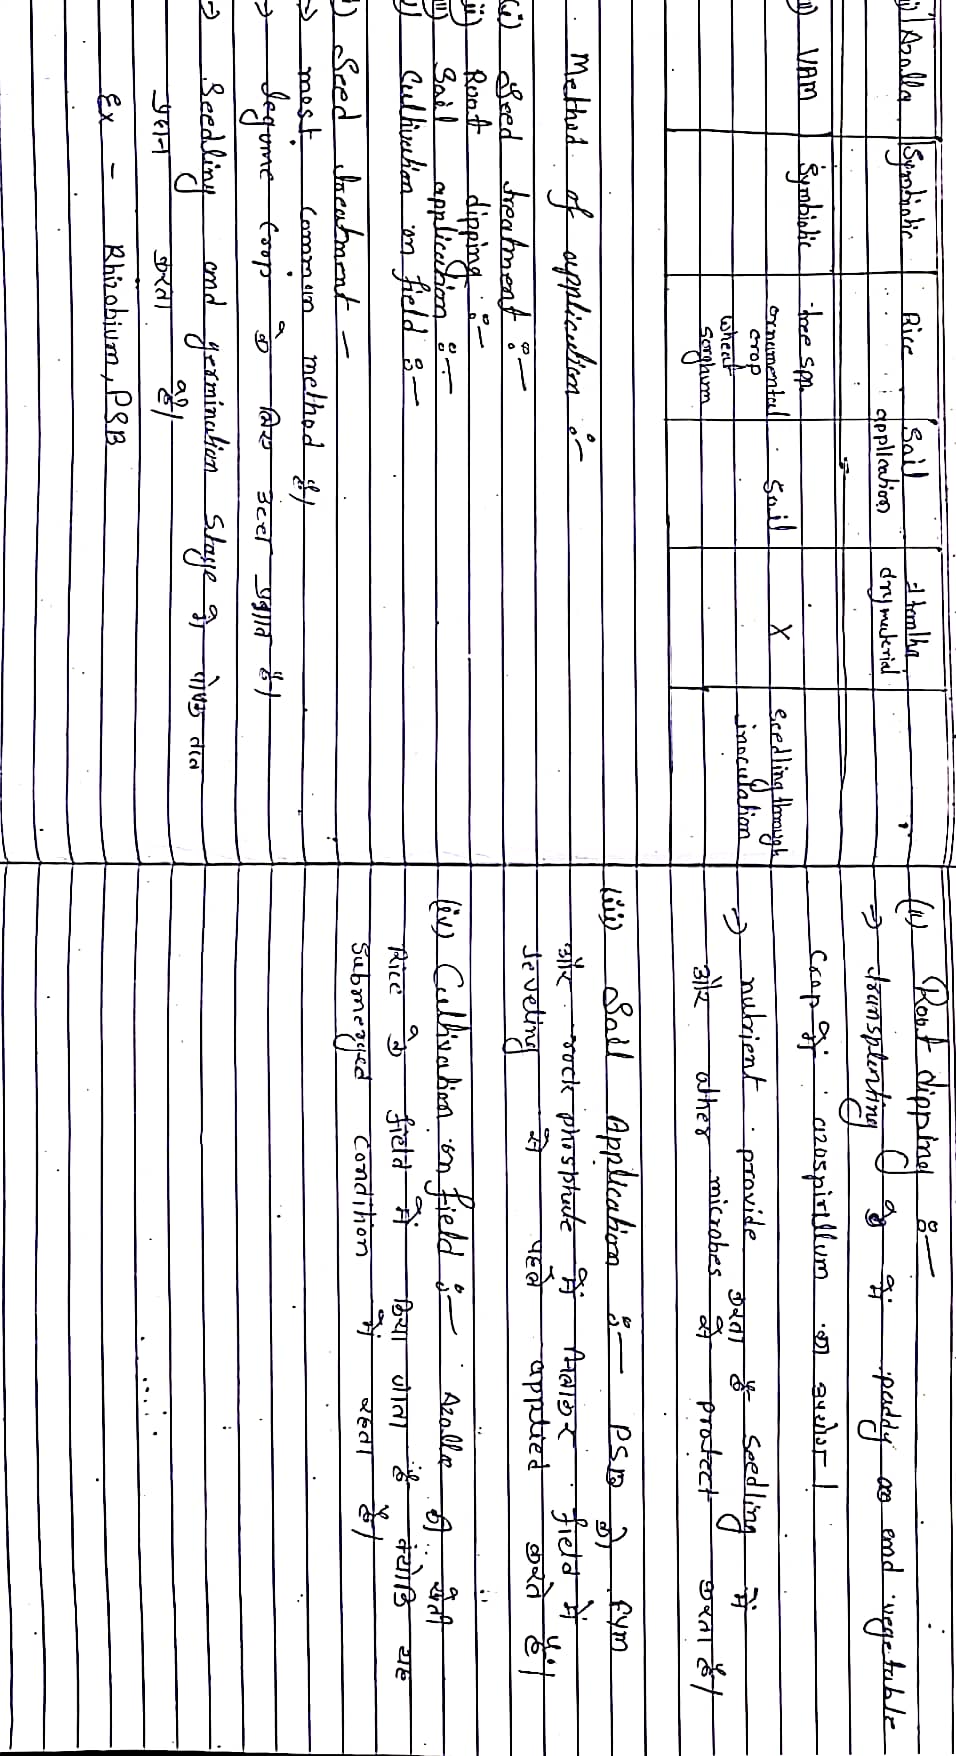 Azolla Symbiotic Rice Soil application 1 ton/ha dry material
VAM Symbiotic tree spp. ornumental crop wheat sorghum soil X seedling through inoculation
Method of application :-
(i) Seed treatment :-
(ii) Root dipping :-
(iii) Soil application :-
Cultivation on field :-
Seed treatment -
→ most common method है।
→ legume crop के लिए प्रभाव है।
→ Seedling and germination Stage में पोषक तत्व
प्रदान करता है।
Ex - Rhizobium, PSB
(ii) Root dipping :-
→ transplanting में paddy and vegetable
crop में azospirillum का उपयोग।
→ nutrient provide करता है seedling में
और other microbes से protect करता है।
(iii) Soil Application :- PSB को FYM
और rock phosphate में मिलाकर field में
leveling से पहले applied करते हैं।
(iv) Cultivation on field :- Azolla की खेती
Rice के field में किया जाता है क्योंकि यह
Submerged condition में रहता है।